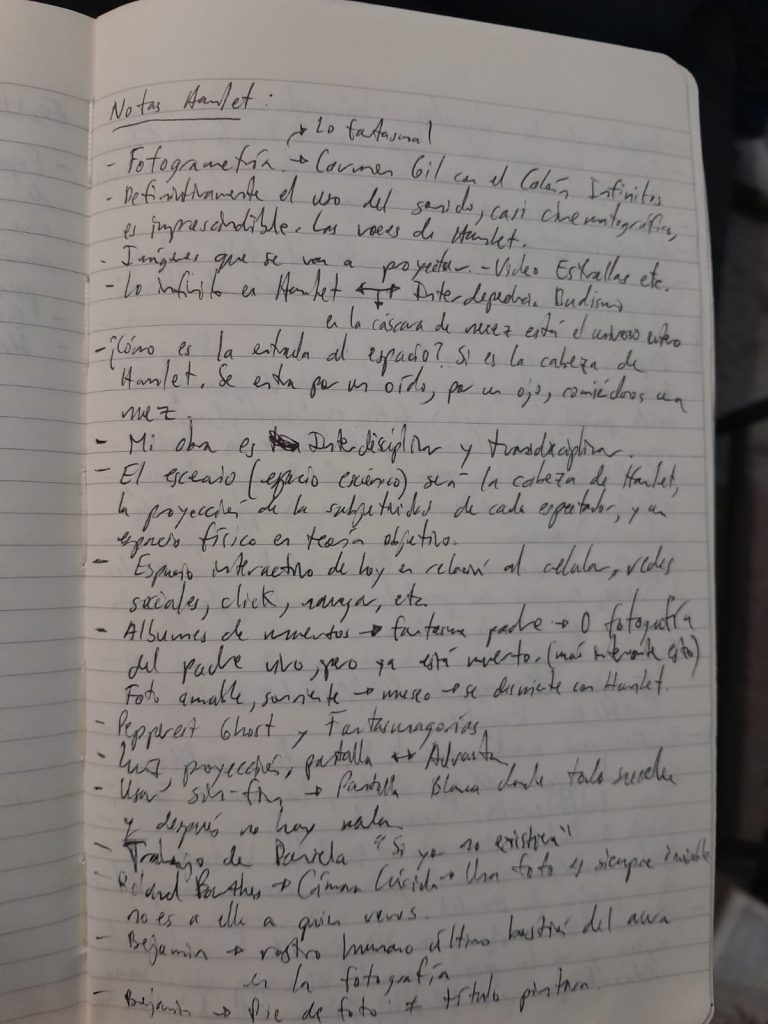 Notas Hamlet:
→ Lo fantasmal
- Fotogrametría. → Carmen Gil con el Colón Infinitos
- Definitivamente el uso del sonido, casi cinematográfico,
es imprescindible. Las voces de Hamlet.
- Imágenes que se van a proyectar. - Video Estrellas etc.
- Lo infinito en Hamlet ↔ Interdependencia Budismo
en la cáscara de nuez está el universo entero
- ¿Cómo es la entrada al espacio? Si es la cabeza de
Hamlet. Se entra por un oído, por un ojo, comiéndonos una
nuez.
- Mi obra es Interdisciplinar y transdisciplinar.
- El escenario (espacio escénico) será la cabeza de Hamlet,
la proyección de la subjetividad de cada espectador, y un
espacio físico en teoría objetivo.
- Espacio interactivo de hoy en relación al celular, redes
sociales, click, navegar, etc.
- Albumes de muertos → fantasma padre → O fotografía
del padre vivo, pero ya está muerto. (más interesante esto)
Foto amable, sonriente → museo → se desmiente con Hamlet.
- Pepprest Ghost y Fantasmagorías
- Luz, proyección, pantalla ↔ Advaita
- Usar sin-fin → Pantalla Blanca donde todo sucede
y después no hay nada
- Trabajo de Daniela "Si yo no existiera"
- Roland Barthes → Cámara Lúcida → Una foto es siempre invisible
no es a ella a quien vemos.
- Bejamin → rostro humano último bastión del aura
en la fotografía
- Bejamin → Pie de foto ≠ título pintura.